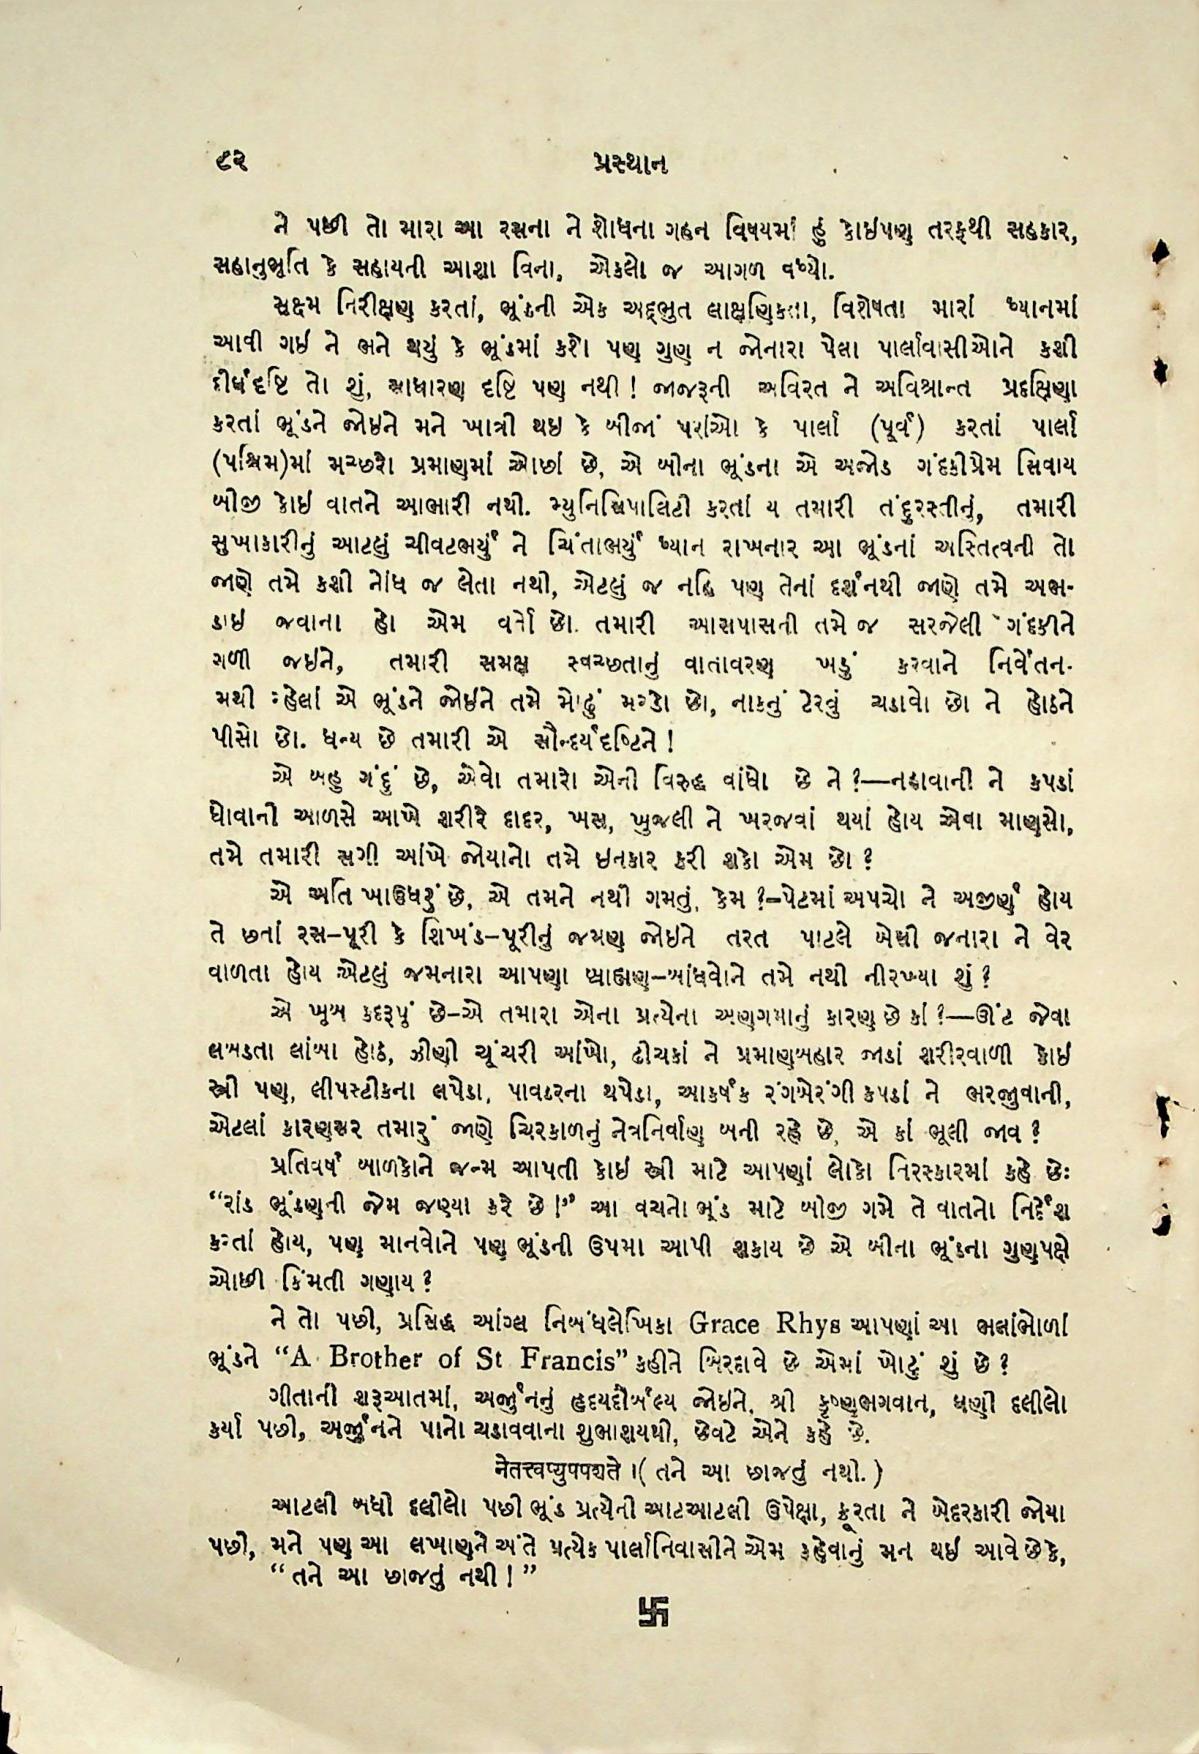 ૯૨
પ્રસ્થાન
ને પછી તો મારા આ રસના ને શોધના ગહન વિષયમાં હું કોઇપણ તરફથી સહકાર,
સહાનુભૂતિ કે સહાયની આશા વિના, એકલો જ આગળ વધ્યો.
સૂક્ષ્મ નિરીક્ષણ કરતાં, ભૂંડની એક અદ્ભુત લાક્ષણિકતા, વિશેષતા મારાં ધ્યાનમાં
આવી ગઇ ને મને થયું કે ભૂંડમાં કશો પણ ગુણ ન જોનારા પેલા પાર્લાવાસીઓને કશી
દીર્ઘદૃષ્ટિ તો શું, સાધારણ દૃષ્ટિ પણ નથી! જાજરૂની અવિરત ને અવિશ્રાન્ત પ્રદક્ષિણા
કરતાં ભૂંડને જોઇને મને ખાત્રી થઇ કે બીજાં પરાંઓ કે પાર્લા (પૂર્વ) કરતાં પાર્લા
(પશ્ચિમ)માં મચ્છરો પ્રમાણમાં ઓછાં છે, એ બીના ભૂંડના એ અજોડ ગંદકીપ્રેમ સિવાય
બીજી કોઇ વાતને આભારી નથી. મ્યુનિસિપાલિટી કરતાં ય તમારી તંદુરસ્તીનું, તમારી
સુખાકારીનું આટલું ચીવટભર્યું ને ચિંતાભર્યું ધ્યાન રાખનાર આ ભૂંડનાં અસ્તિત્વની તો
જાણે તમે કશી નોંધ જ લેતા નથી, એટલું જ નહિ પણ તેનાં દર્શનથી જાણે તમે અભ-
ડાઇ જવાના હો એમ વર્તો છો. તમારી આસપાસની તમે જ સરજેલી ગંદકીને
ગળી જઇને, તમારી સમક્ષ સ્વચ્છતાનું વાતાવરણ ખડું કરવાને નિર્વેતન-
મથી રહેલાં એ ભૂંડને જોઇને તમે મોઢું મરડો છો, નાકનું ટેરવું ચડાવો છો ને હોઠને
પીસો છો. ધન્ય છે તમારી એ સૌન્દર્યદૃષ્ટિને!
એ બહુ ગંદું છે, એવો તમારો એની વિરુદ્ધ વાંધો છે ને?—નહાવાની ને કપડાં
ધોવાની આળસે આખે શરીરે દાદર, ખસ, ખુજલી ને ખરજવાં થયાં હોય એવા માણસો,
તમે તમારી સગી આંખે જોયાનો તમે ઇનકાર કરી શકો એમ છો?
એ અતિ ખાઉધરું છે, એ તમને નથી ગમતું, કેમ?–પેટમાં અપચો ને અજીર્ણ હોય
તે છતાં રસ–પૂરી કે શિખંડ–પૂરીનું જમણ જોઇને તરત પાટલે બેસી જનારા ને વેર
વાળતા હોય એટલું જમનારા આપણા બ્રાહ્મણ–બાંધવોને તમે નથી નીરખ્યા શું?
એ ખૂબ કદરૂપું છે–એ તમારા એના પ્રત્યેના અણગમાનું કારણ છે કાં?—ઊંટ જેવા
લબડતા લાંબા હોઠ, ઝીણી ચૂંચરી આંખો, ઢીચકાં ને પ્રમાણબહાર જાડાં શરીરવાળી કોઇ
સ્ત્રી પણ, લીપસ્ટીકના લપેડા, પાવડરના થપેડા, આકર્ષક રંગબેરંગી કપડાં ને ભરજુવાની,
એટલાં કારણસર તમારું જાણે ચિરકાળનું નેત્રનિર્વાણ બની રહે છે, એ કાં ભૂલી જાવ?
પ્રતિવર્ષ બાળકોને જન્મ આપતી કોઇ સ્ત્રી માટે આપણાં લોકો તિરસ્કારમાં કહે છેઃ
“રાંડ ભૂંડણની જેમ જણ્યા કરે છે!” આ વચનો ભૂંડ માટે બીજી ગમે તે વાતનો નિર્દેશ
કરતાં હોય, પણ માનવોને પણ ભૂંડની ઉપમા આપી શકાય છે એ બીના ભૂંડના ગુણપક્ષે
ઓછી કિંમતી ગણાય?
ને તો પછી, પ્રસિદ્ધ આંગ્લ નિબંધલેખિકા Grace Rhys આપણાં આ ભલાંભોળાં
ભૂંડને “A Brother of St Francis” કહીને બિરદાવે છે એમાં ખોટું શું છે?
ગીતાની શરૂઆતમાં, અર્જુનનું હૃદયદૌર્બલ્ય જોઇને, શ્રી કૃષ્ણભગવાન, ઘણી દલીલો
કર્યા પછી, અર્જુનને પાનો ચડાવવાના શુભાશયથી, છેવટે એને કહે છે.
नेतत्त्वप्युपपद्यते ।( તને આ છાજતું નથી.)
આટલી બધી દલીલો પછી ભૂંડ પ્રત્યેની આટઆટલી ઉપેક્ષા, ક્રૂરતા ને બેદરકારી જોયા
પછી, મને પણ આ લખાણને અંતે પ્રત્યેક પાર્લાનિવાસીને એમ કહેવાનું મન થઇ આવે છે કે,
“તને આ છાજતું નથી!”